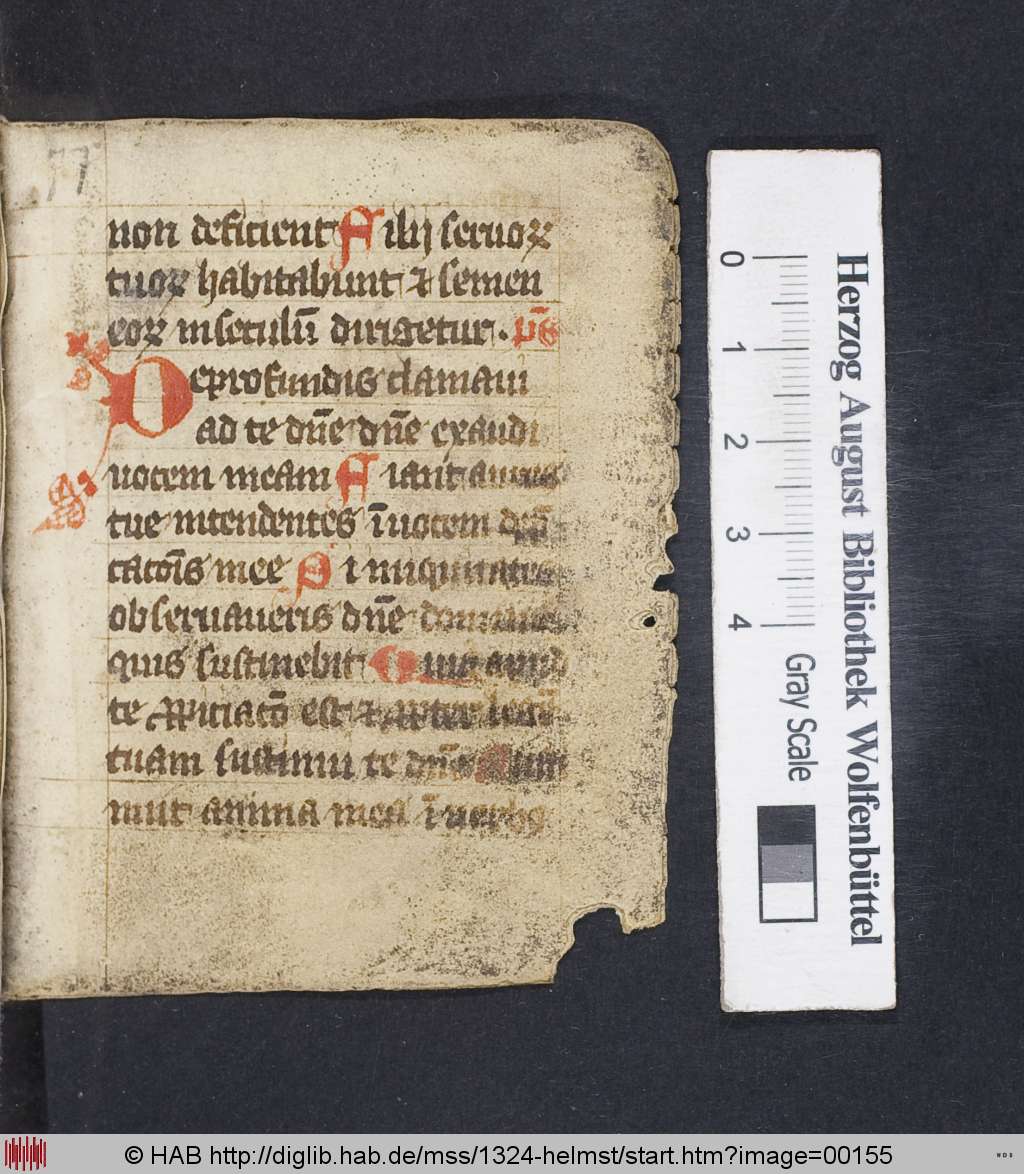 77
non deficient Filij seruoꝝ
tuoꝝ habitabunt ⁊ semen
eoꝝ in seculū dirigetur · p̄s
De profundis clamaui
ad te dn̄e dn̄e exaudi
uocem meam Fiant aures
tue intendentes ī uocem dep̄
catōis mee Si iniquitates
obseruaueris dn̄e domine
quis sustinebit Quia apud
te ꝓpiciatō est ⁊ ꝓpter legē
tuam sustinui te dn̄e Susti
nuit anima mea ī uerbo
0
1
2
3
4
Gray Scale
Herzog August Bibliothek Wolfenbüttel
© HAB http://diglib.hab.de/mss/1324-helmst/start.htm?image=00155